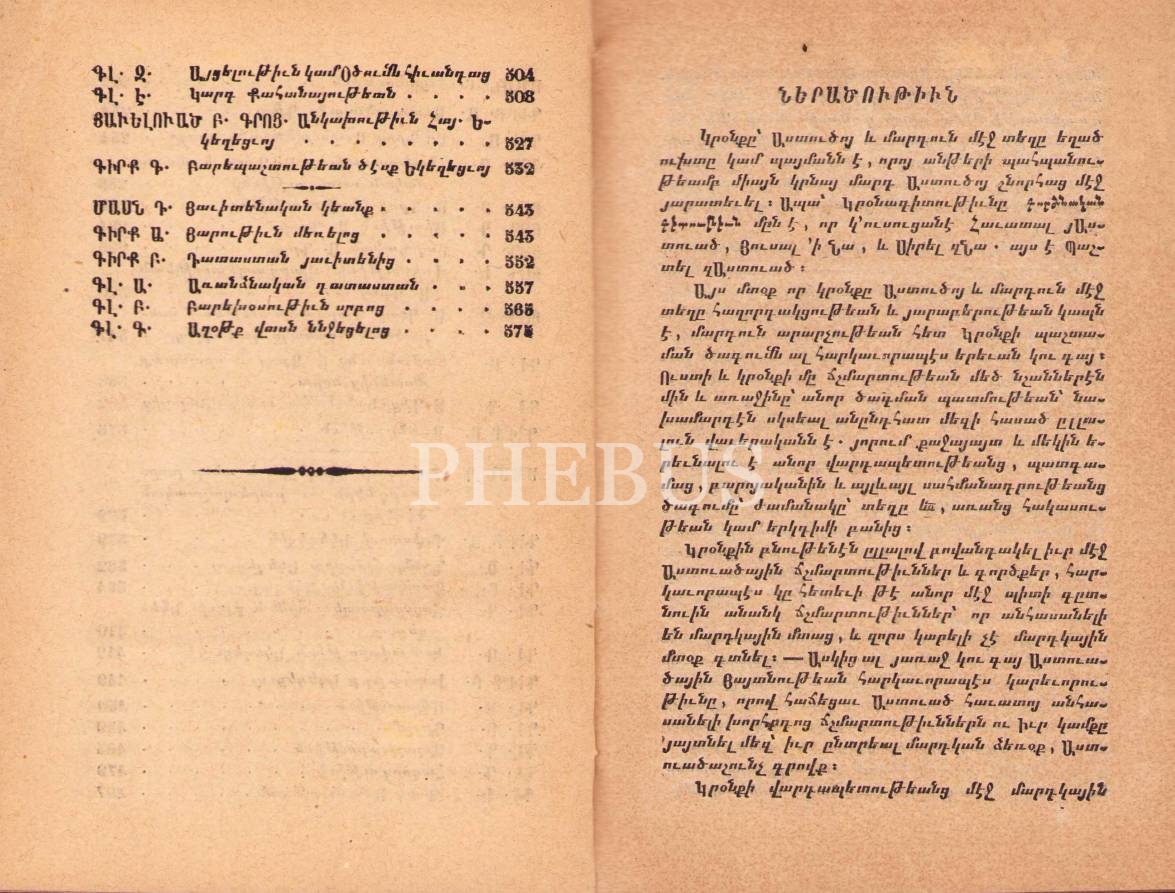 ԳԼ. Զ. Այցելութիւն կամ Օծումն հիւանդաց 504
ԳԼ. Է. Կարգ Քահանայութեան . . . . 508
ՅԱՒԵԼՈՒԱԾ Բ. ԳՐՈՑ. Անկախութիւն Հայ. Ե-
կեղեցւոյ . . . . . . . . 527
ԳԻՐՔ Գ. Բարեպաշտութեան ծէսք Եկեղեցւոյ 532
ՄԱՍՆ Դ. Յաւիտենական կեանք . . . . . 543
ԳԻՐՔ Ա. Յարութիւն մեռելոց . . . . . 543
ԳԻՐՔ Բ. Դատաստան յաւիտենից . . . . 552
ԳԼ. Ա. Առանձնական դատաստան . . . 557
ԳԼ. Բ. Բարեխօսութիւն սրբոց . . . . 565
ԳԼ. Գ. Աղօթք վասն ննջեցելոց . . . . 575
ՆԵՐԱԾՈՒԹԻՒՆ
Կրօնքը՝ Աստուծոյ և մարդուն մէջ տեղը եղած
ուխտը կամ պայմանն է, որոյ անթերի պահպանու-
թեամբ միայն կրնայ մարդ Աստուծոյ շնորհաց մէջ
յարատեւել։ Ապա՝ Կրօնագիտութիւնը գործնական
գիտութիւն մըն է, որ կ'ուսուցանէ Հաւատալ յԱս-
տուած, Յուսալ 'ի Նա, և Սիրել զՆա. այս է Պաշ-
տել զԱստուած։
Այս մտօք որ կրօնքը Աստուծոյ և մարդուն մէջ
տեղը հաղորդակցութեան և յարաբերութեան կապն
է, մարդուն արարչութեան հետ Կրօնքի պաշտա-
ման ծագումն ալ հարկաւորապէս երեւան կու գայ։
Ուստի և կրօնքի մը ճշմարտութեան մեծ նշաններէն
մին և առաջինը՝ անոր ծագման պատմութեան՝ նա-
խամարդէն սկսեալ անընդհատ մեզի հասած ըլլա-
լուն վաւերականն է. յորում քաջայայտ և մեկին ե-
րեւնալու է անոր վարդապետութեանց, պատգա-
մաց, բարոյականին և այլևայլ սահմանադրութեանց
ծագումը՝ ժամանակը՝ տեղը ևն, առանց հակասու-
թեան կամ երկդիմի բանից։
Կրօնքին բնութենէն ըլլալով բովանդակել իւր մէջ
Աստուածային ճշմարտութիւններ և գործքեր, հար-
կաւորապէս կը հետեւի թէ անոր մէջ պիտի գըտ-
նուին անանկ ճշմարտութիւններ՝ որ անհասանելի
են մարդկային մտաց, և զորս կարելի չէ մարդկային
մտօք գտնել։ — Ասկից ալ յառաջ կու գայ Աստուա-
ծային Յայտնութեան հարկաւորապէս կարեւորու-
թիւնը, որով հաճեցաւ Աստուած հաւատոյ անհա-
սանելի խորհրդոց ճշմարտութիւններն ու իւր կամքը
յայտնել մեզ՝ իւր ընտրեալ մարդկան ձեռօք, Աստ-
ուածաշունչ գրովք։
Կրօնքի վարդապետութեանց մէջ մարդկային
PHEBUS